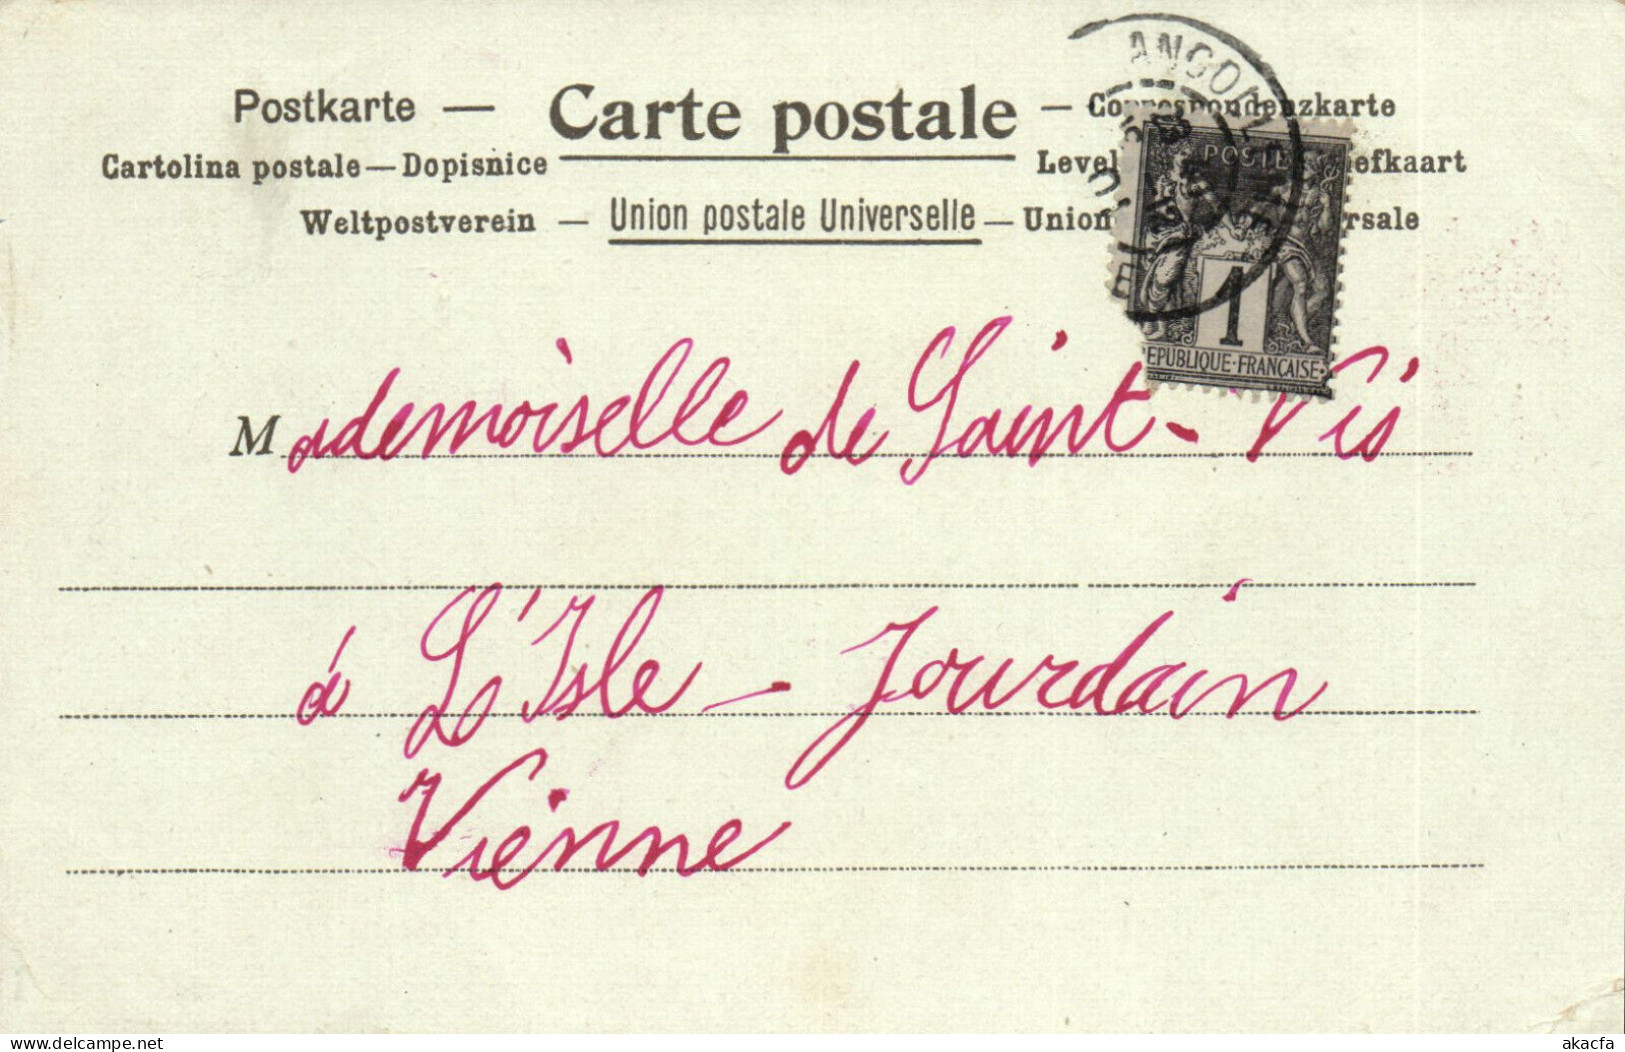 Postkarte — Carte postale — Correspondenzkarte
Cartolina postale — Dopisnice Level efkaart
Weltpostverein — Union postale Universelle — Union rsale
ANGOUL
POSTE
1
EPUBLIQUE·FRANÇAISE
Mademoiselle de Saint-Vis
à L'Isle-Jourdain
Vienne
akacfa